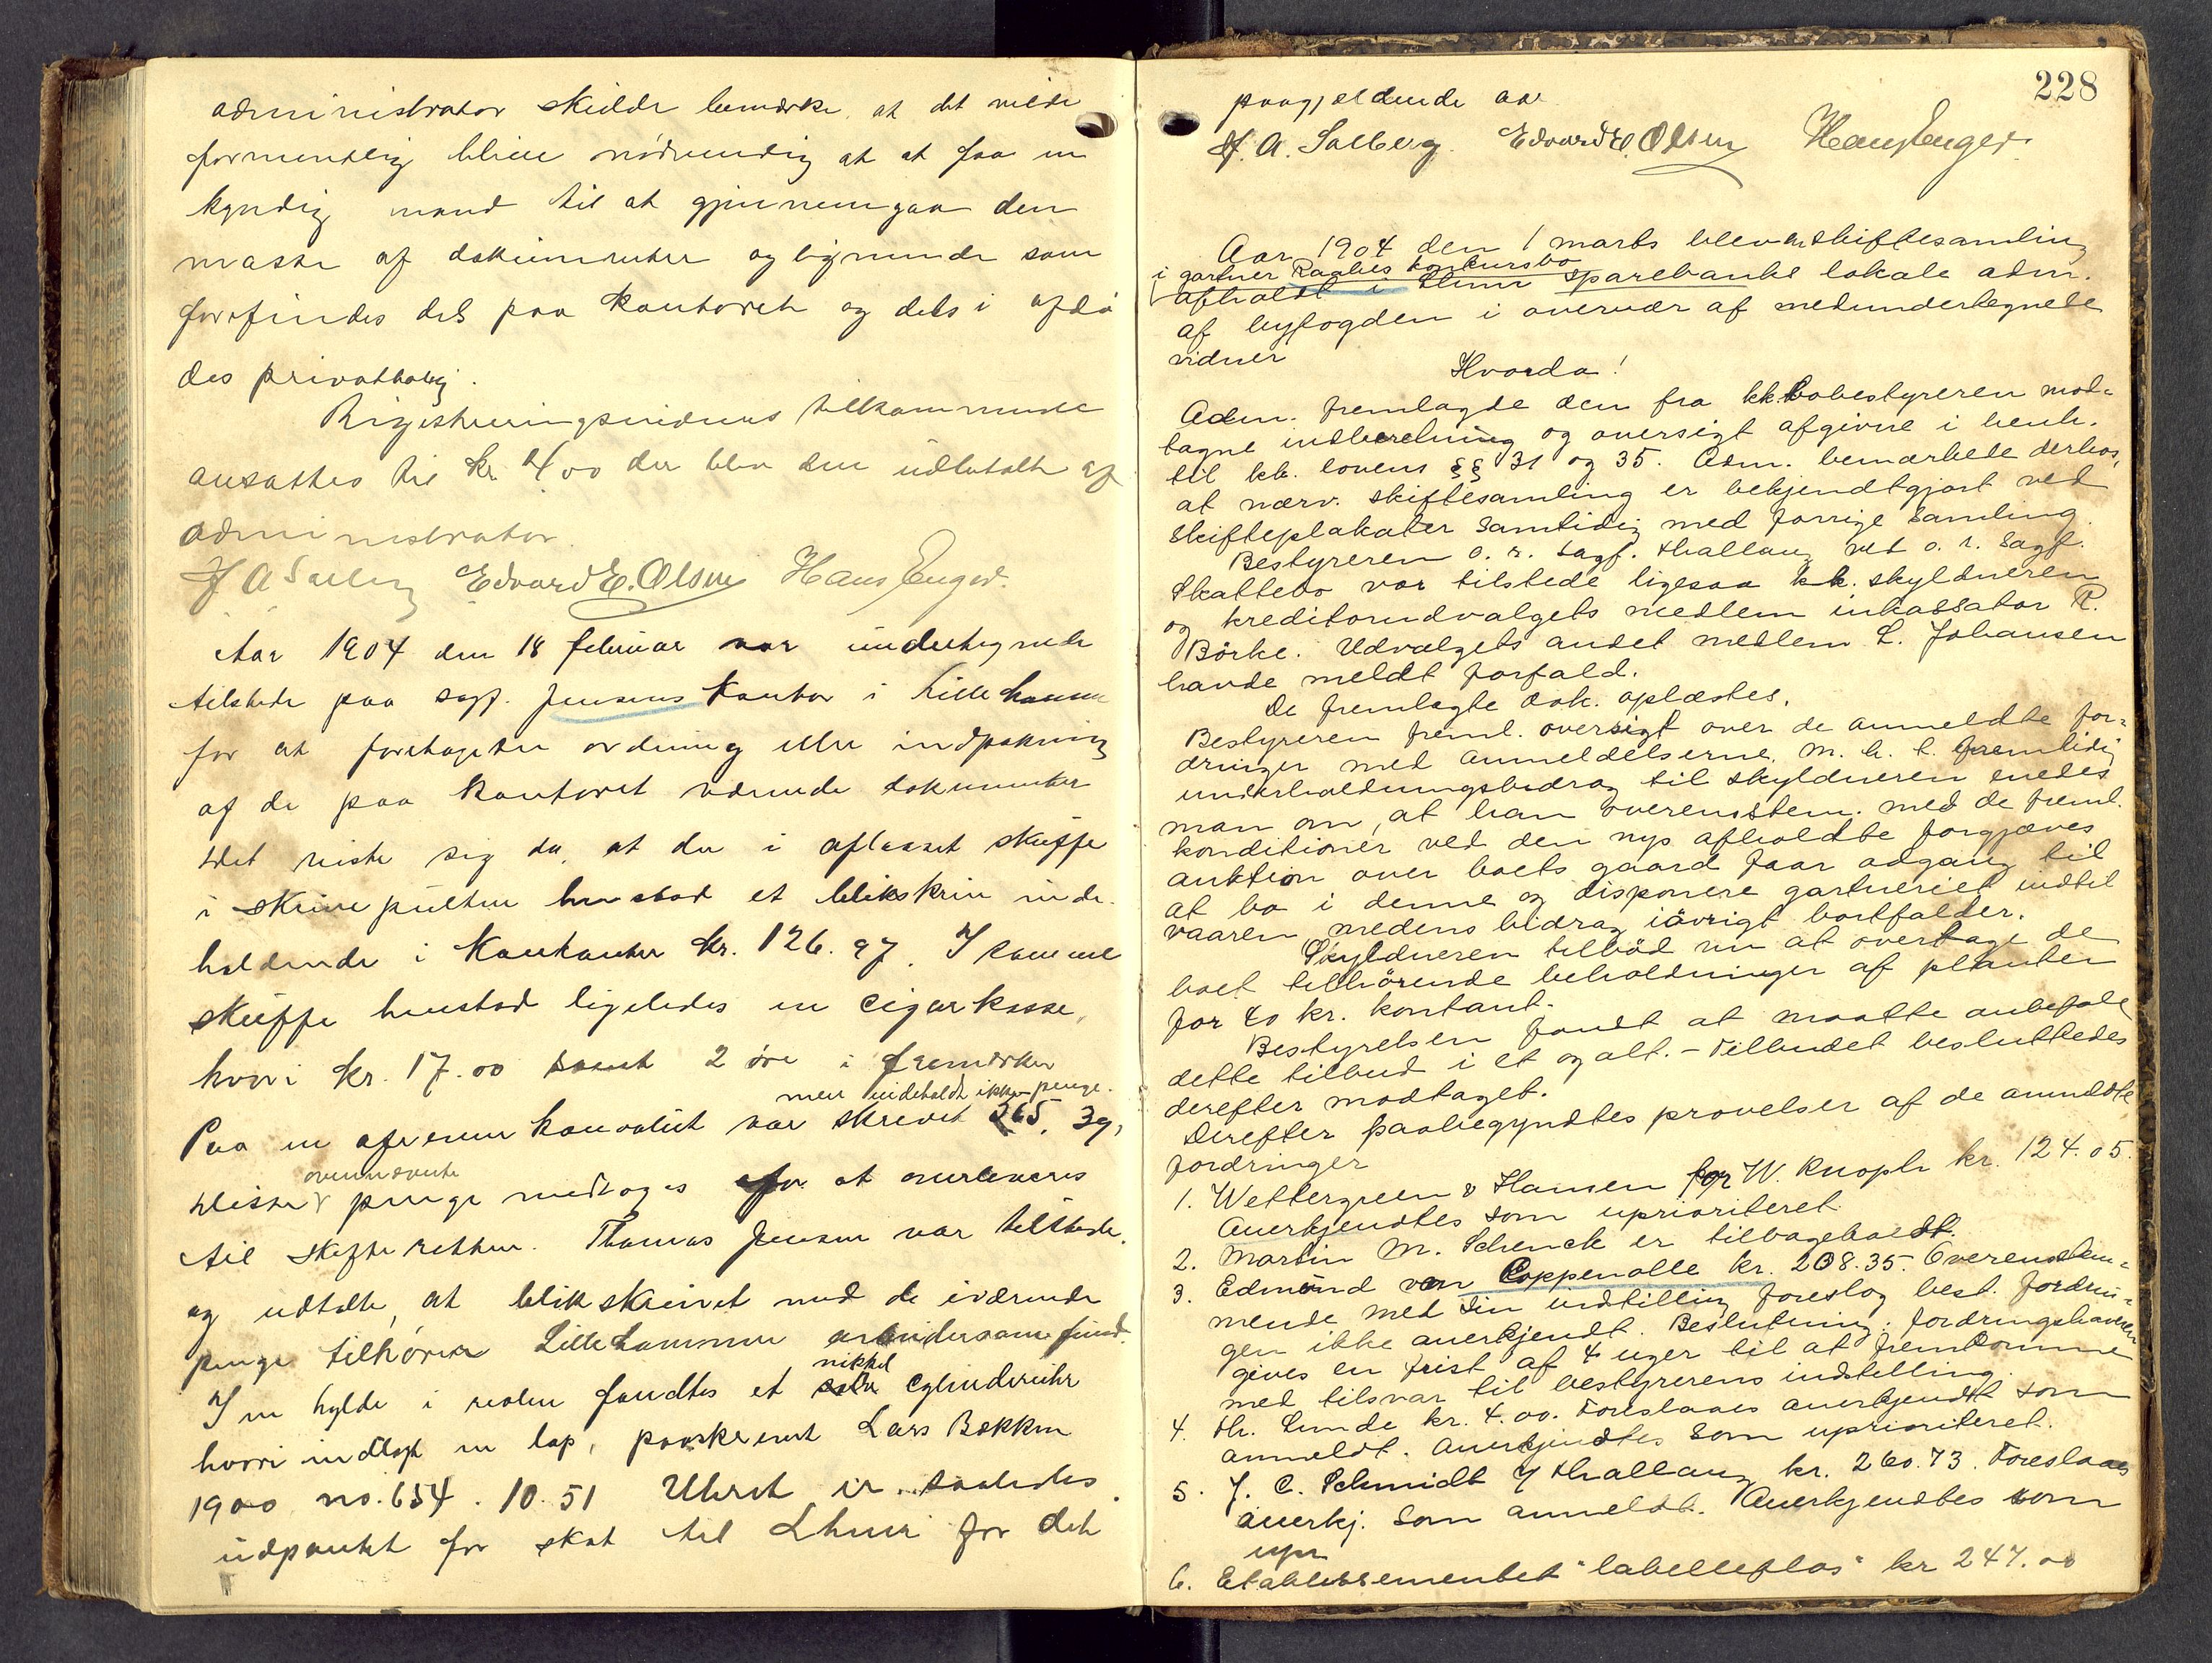 administrator skulde bemærke, at det vilde
formentlig blive nødvendig at at faa en
kyndig mand til at gjennemgaa den
masse af dokumenter og lignende som
forefindes dels paa kontoret og dels i afdø
des privatbolig.
Registreringsvidnernes tilkommende
ansattes til kr. 4.00 der blev dem udbetalt af
administrator.
H A Salberg Edvard E. Olsen Hans Enger.
Aar 1904 den 18 februar var undertegnede
tilstede paa sagf. Jensens kontor i Lillehammer
for at foretage en ordning eller indpakning
af de paa kontoret værende dokumenter
Det viste sig da, at der i aflaaset skuffe
i skrivepulten henstod et blikskrin inde-
holdende i kontanter kr. 126.97. I samme
skuffe henstod ligeledes en cigarkasse,
hvori kr. 17.00 samt 2 øre i frimærker
men indeholdt ikke penge.
Paa en afreven konvolut var skrevet 265.39,
ovennævnte
Disse penge medtoges for at overleveres
til skifteretten. Thomas Jensen var tilstede
og udtalte, at blikskrinet med de iværende
penge tilhører Lillehammer arbeidersamfund.
nikkel
I en hylde i reolen fandtes et cylinderuhr
hvori indlagt en lap, paaskrevet Lars Bækken
1900 no. 654. 10.51 Uhret er saaledes
udpantet for skat til Lhmr for det
228
paagjældende aar
H. A. Salberg. Edvard E. Olsen Hans Enger.
Aar 1904 den 1 marts blev en skiftesamling
i gartner Raabes konkursbo
afholdt i Lhmr sparebanks lokale adm.
af byfogden i overvær af medundertegnede
vidner
Hvorda!
Adm. fremlagde den fra kk.bobestyreren mod-
tagne indberetning og oversigt afgivne i henh.
til kk. lovens §§ 31 og 35. Adm. bemærkede derhos,
at nærv. skiftesamling er bekjendtgjort ved
skifteplakater samtidig med forrige samling.
Bestyreren o. r. sagf. Thallaug ved o. r. sagf.
Skattebo var tilstede ligesaa kk. skyldneren
og kreditorudvalgets medlem inkassator R.
Börke. Udvalgets andet medlem L. Johansen
havde meldt forfald.
De fremlagte dok. oplæstes.
Bestyreren freml. oversigt over de anmeldte for-
dringer med anmeldelserne. M. h. t. fremtidig
underholdningsbidrag til skyldneren enedes
man om, at han overensstem. med de freml.
konditioner ved den nys afholdte forgjæves
auktion over boets gaard faar adgang til
at bo i denne og disponere gartneriet indtil
vaaren, medens bidrag iövrigt bortfalder.
Skyldneren tilböd nu at overtage de
boet tilhörende beholdninger af planter
for 40 kr. kontant.
Bestyrelsen fandt at maatte anbefale
dette tilbud i et og alt. – Tilbudet besluttedes
derefter modtaget.
Derefter paabegyndtes prövelser af de anmeldte
fordringer
1. Wettergreen & Hansen for W. Knoph kr. 124.05.
Anerkjendtes som uprioriteret.
2. Martin M. Schenck er tilbageholdt.
3. Edmond van Coppenolle kr. 208.35. Overensstem-
mende med sin indstilling foreslog best. fordrin-
gen ikke anerkjendt. Beslutning: fordringshaveren
gives en frist af 4 uger til at fremkomme
med tilsvar til bestyrerens indstilling.
4. Th. Lunde kr. 4.00. Foreslaaes anerkjendt som
anmeldt. Anerkjendtes som uprioriteret.
5. J. C. Schmidt v/ Thallaug kr. 260.73. Foreslaaes
anerkj. som anmeldt. Anerkjendtes som
upr
6. Etablissementet "labelleflos" kr 247.00